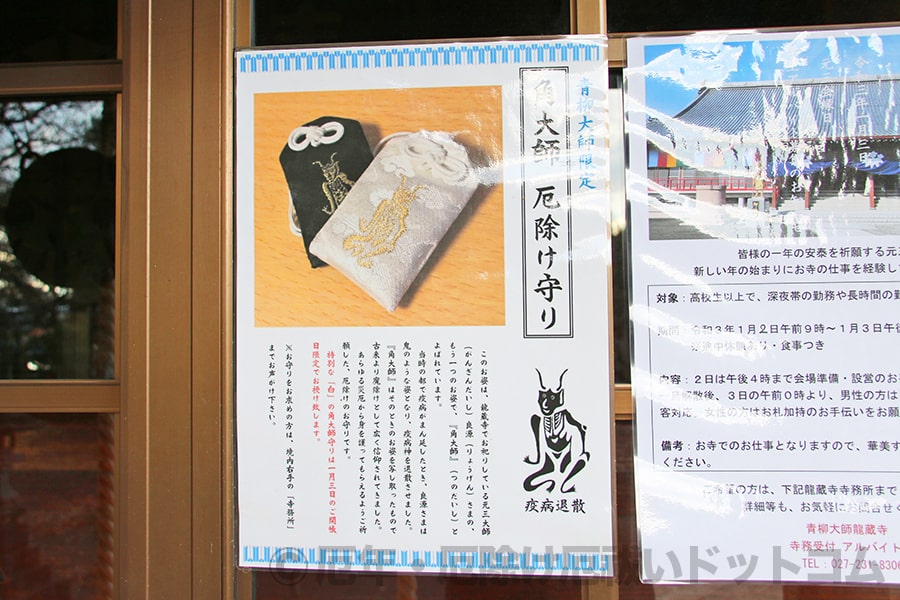 青柳大師限定
角大師 厄除け守り
このお姿は、龍蔵寺でお祀りしている元三大師
(がんざんだいし)良源(りょうげん)さまの、
もう一つのお姿で、『角大師』(つのだいし)と
よばれています。
当時の都で疫病がまん延したとき、良源さまは
鬼のような姿となり、疫病神を退散させました。
『角大師』はそのときのお姿を写し取ったもので
古来より魔除けとして広く信仰されてきました。
あらゆる災厄から身を護ってもらえるようご祈
願した、厄除けのお守りです。
特別な「白」の角大師守りは一月三日のご開帳
日限定でお授け致します。
※お守りをお求めの方は、境内右手の「寺務所」
までお声がけ下さい。
疫病退散
令和三年一月三日
皆様の一年の安泰を祈願する元三
新しい年の始まりにお寺の仕事を経験し
対象:高校生以上で、深夜帯の勤務や長時間の勤
期間:令和3年1月2日午前9時～1月3日午後
※途中休憩あり・食事つき
内容:2日は午後4時まで会場準備・設営のお
解散後、3日の午前0時より、男性の方は
客対応、女性の方はお札加持のお手伝いをお願
備考:お寺でのお仕事となりますので、華美す
ください。
ご希望の方は、下記龍蔵寺寺務所まで
詳細等も、お気軽にお問合せく
青柳大師龍蔵寺
寺務受付 アルバイト
TEL:027-231-8306
©厄年・厄除け厄祓いドットコム